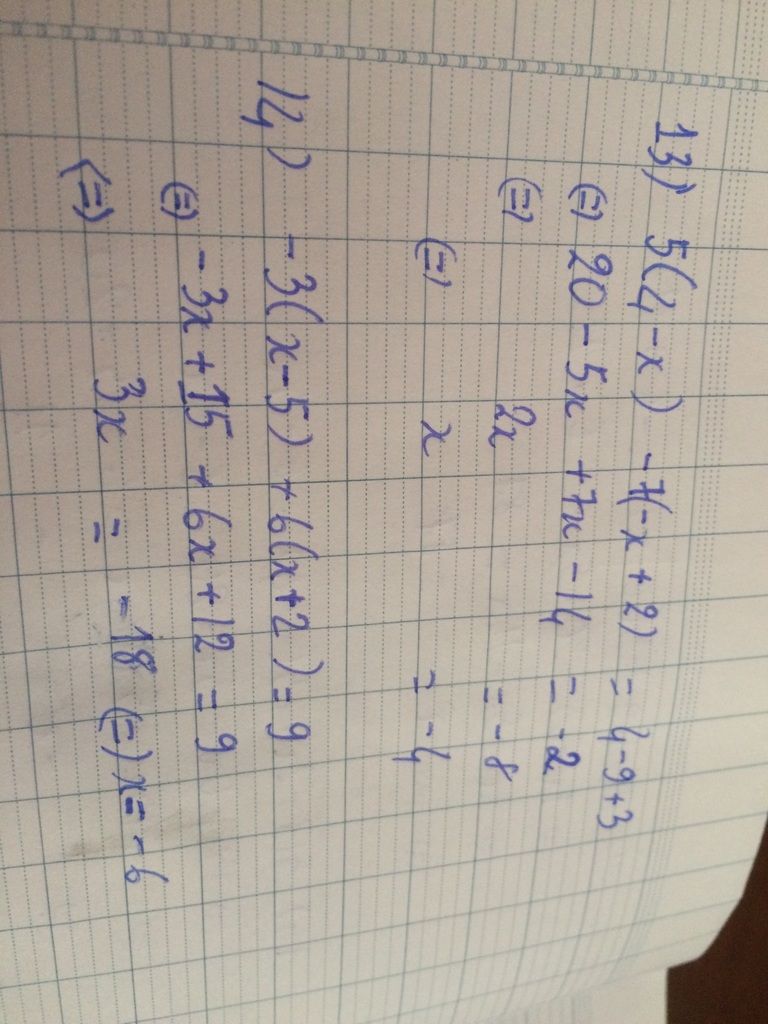 13) 5(4-x) -7(-x+2) = 4-9+3
(=) 20-5x+7x-14 = -2
(=) 2x = -8
(=) x = -4
14) -3(x-5)+6(x+2)=9
(=) -3x+15+6x+12=9
(=) 3x = -18 (=) x=-6